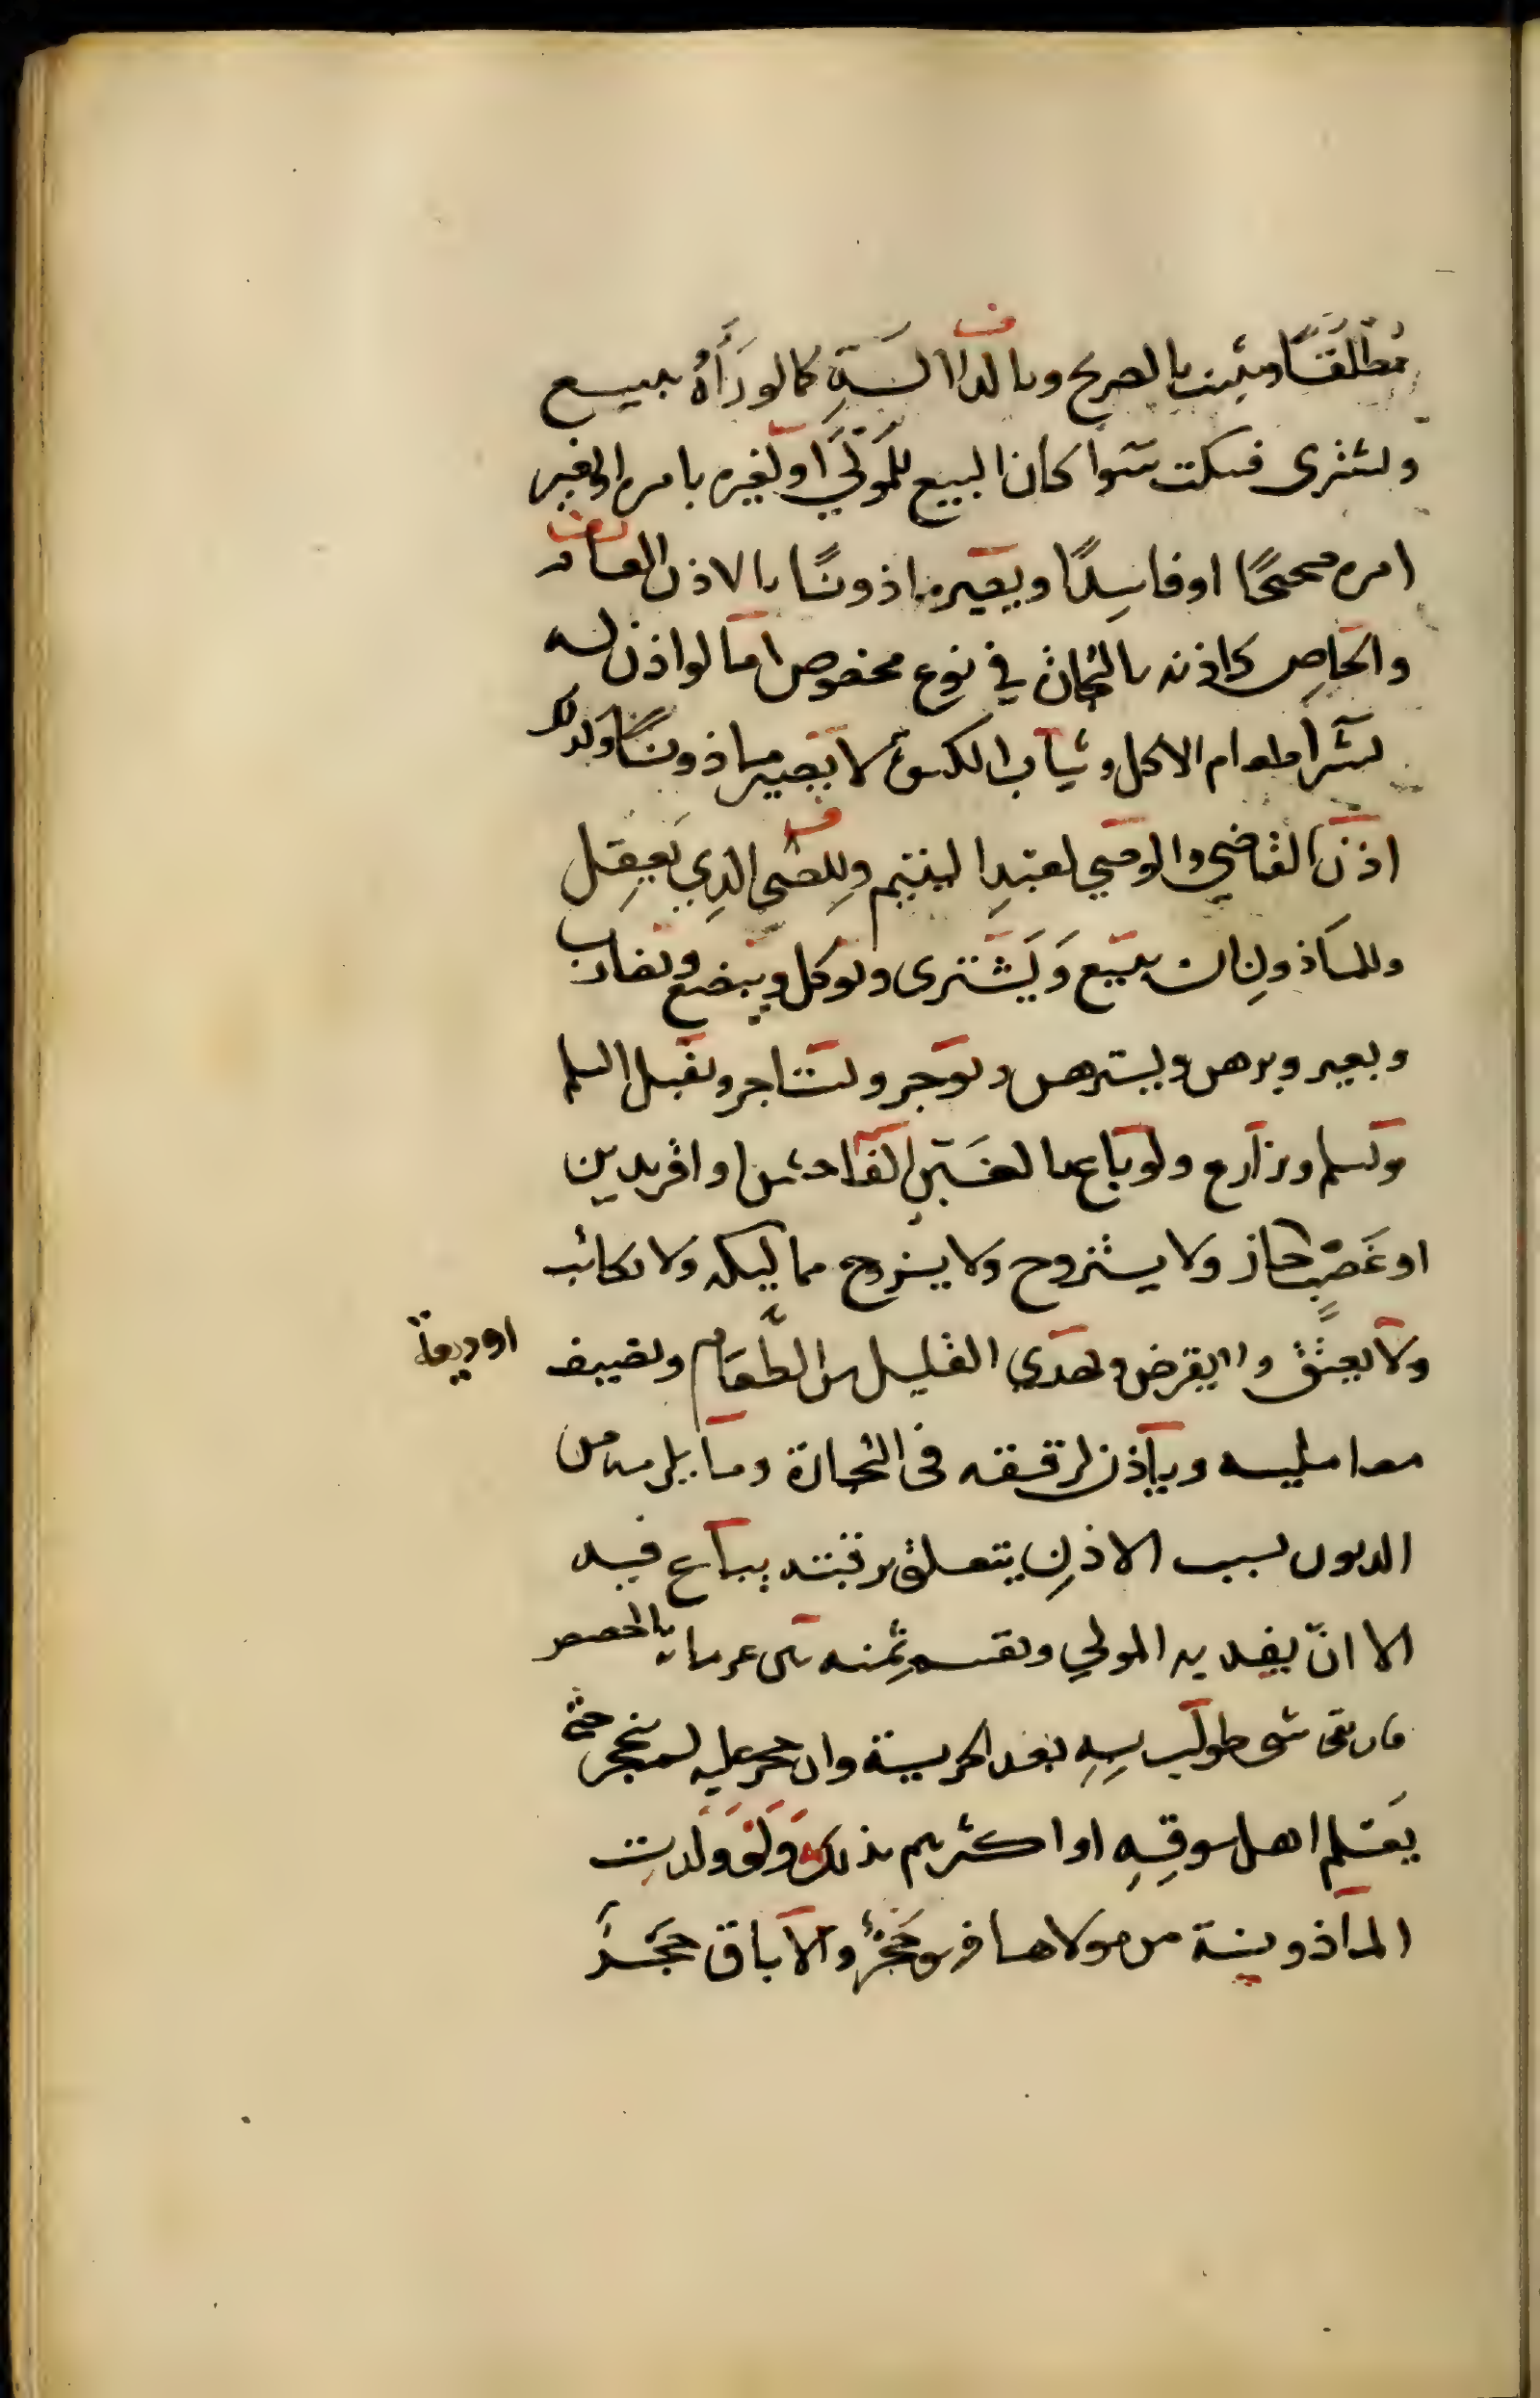 مطلقًا ويثبت بالصريح وبالدلالة كما لو رَأَهُ يبيع
ويشترى فسكت سَوا كان البيع للمَوْلَى أو لغيره بامره او بغير
امره صحيحًا او فاسِدًا ويصير ماذونًا بالاذن العام
والخاصِ كاذنه بالتجارة في نوع مخصوص امّا لو اذن له
بشرا طعام الاكل وثياب الكسوة لا يصير ماذونًا وكذلك
اذن القاضي والوصي لعَبدِ اليتيم وللصَّبي الذِي يَعقِل
وللمَاذونِ ان يبيع وَيَشْترى ويوكل ويبضع ويضارب
ويعير ويرهن ويسترهن ويوجر ويستاجر ويقبل السلم
ويسلم ويزارع ولو باع بالغَبْنِ الفاحش او اقر بدين
او غَصْبٍ جاز ولا يتزوج ولا يزوج مماليكه ولا يكاتب
ولا يعتق ولا يقرض ويهدى القليل من الطَّعَام ويضيف
او وديعة
معامليه وياذن لرقيقه فى التجارة وما يلزمه من
الديون بسبب الاذنِ يتعلق برقبته يباع فيه
الا انّ يفديه المولي ويقسم ثمنه على غرمايه بالحصص
فان بقى شى طولب بِهِ بعد الحرية وان حجر عليه لم ينحجر حتى
يَعْلم اهل سوقِهِ او اكثرهم بذلك وَلَوْ وَلَدتِ
الماذونة من مولاها فهو حَجْرٌ والاباق حَجْرٌ